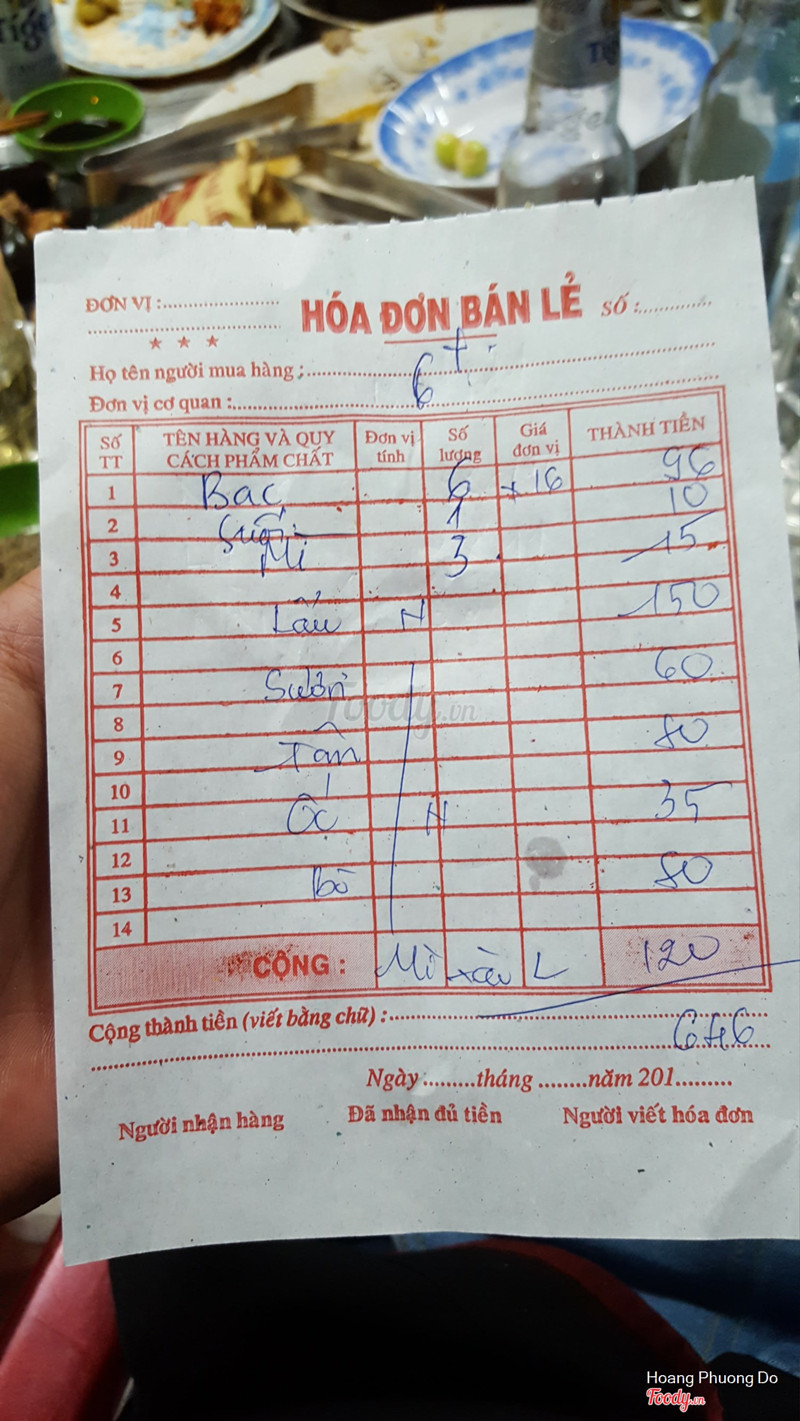 Tiger
Tiger
ĐƠN VỊ :............................
HÓA ĐƠN BÁN LẺ
SỐ :................
★ ★ ★
Họ tên người mua hàng :
6 t
Đơn vị cơ quan :
Số TT TÊN HÀNG VÀ QUY CÁCH PHẨM CHẤT Đơn vị tính Số lượng Giá đơn vị THÀNH TIỀN
1 Bạc 6 x 16 96
2 Suối 1 10
3 Mì 3 15
4
5 Lẩu N 150
6
7 Sườn 60
8
9 80
10
11 Ốc N 35
12
13 bò 80
14
CỘNG : Mì xào L 120
Cộng thành tiền (viết bằng chữ) :
646
Ngày.........tháng ........năm 201..........
Người nhận hàng Đã nhận đủ tiền Người viết hóa đơn
Foody.vn
Hoang Phuong Do
Foody.vn